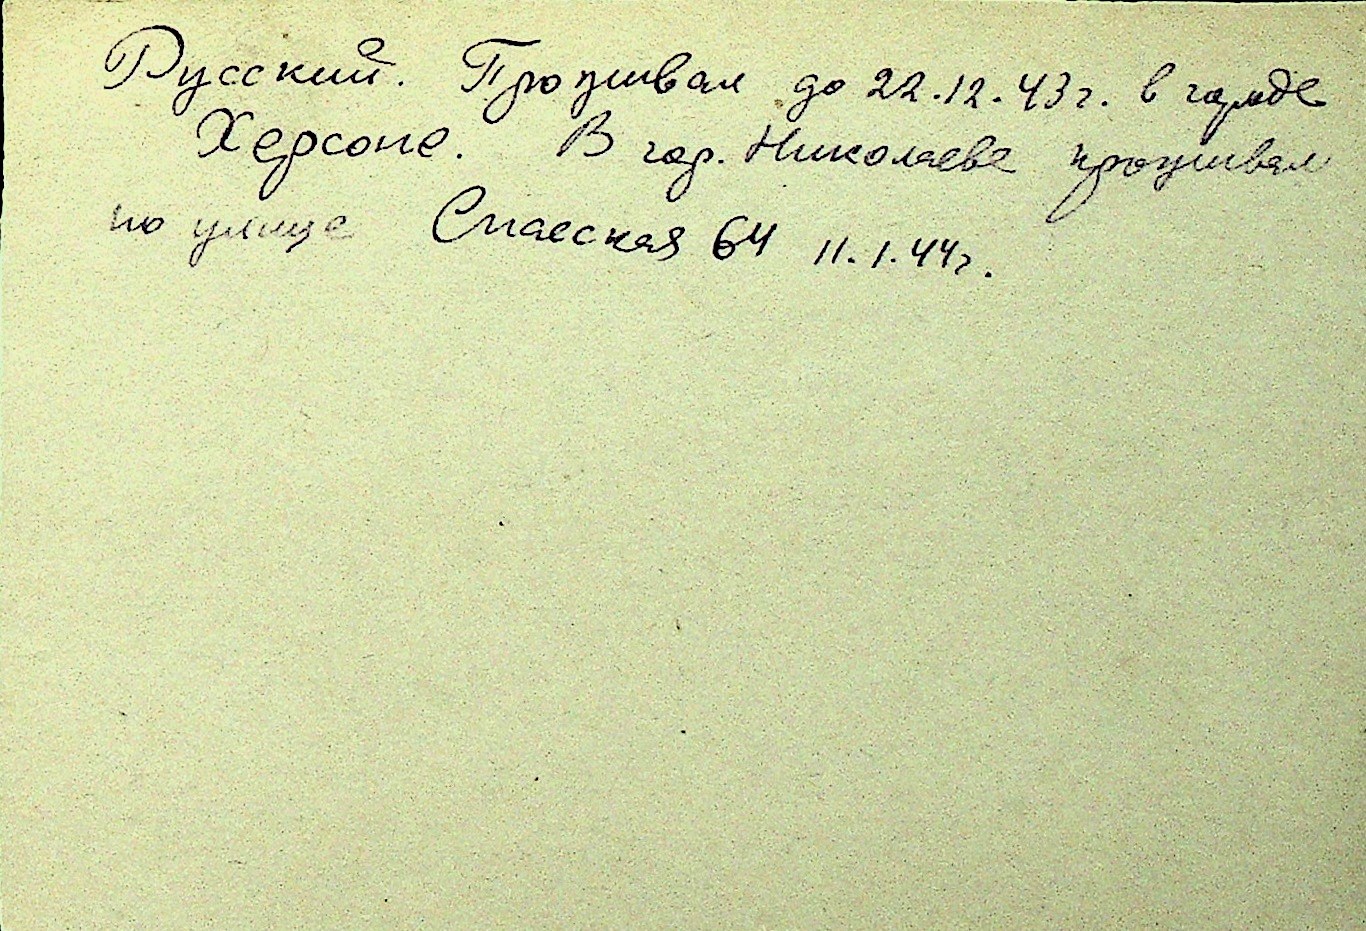 Русский. Проживал до 22.12.43г. в городе
Херсоне. В гор. Николаеве проживал
по улице Спасская 64 11.1.44г.